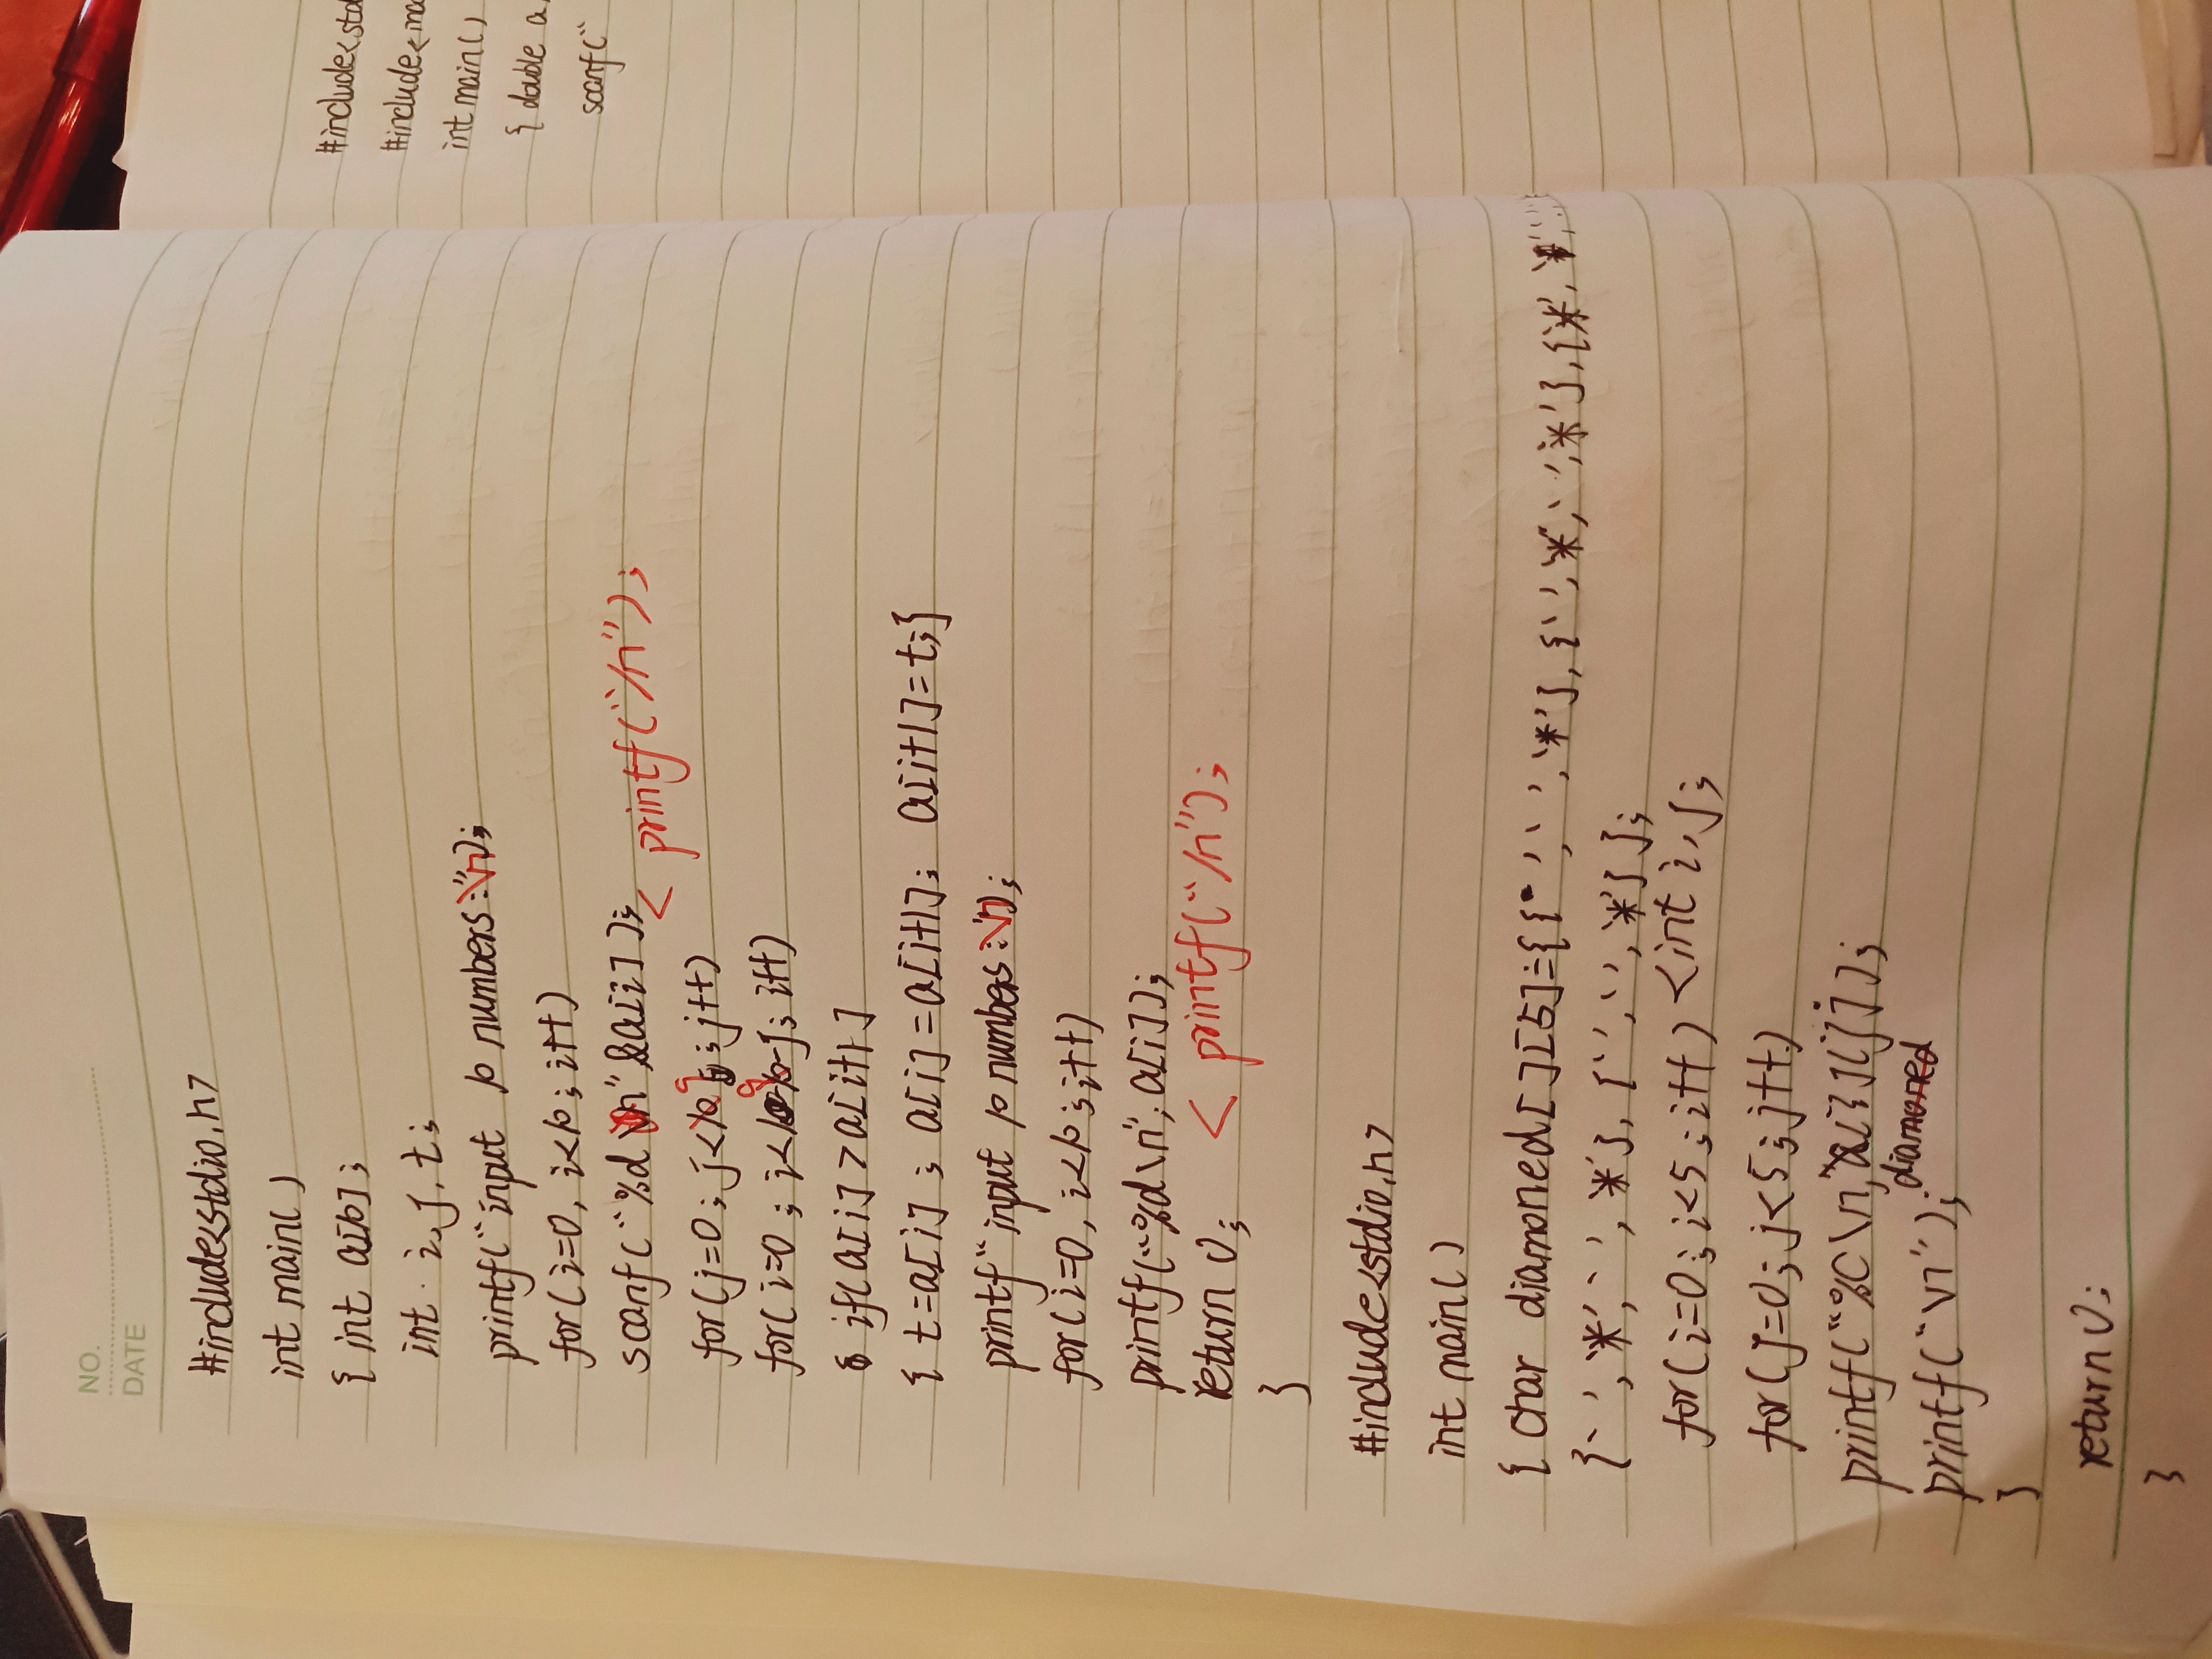 NO.
DATE
#include<stdio.h>
int main()
{ int a[10];
int i,j,t;
printf("input 10 numbers:\n");
for(i=0,i<10;i++)
scanf("%d",&a[i]);
< printf("/n");
for(j=0;j<9;j++)
for(i=0;i<9-j;i++)
if(a[i]>a[i+1]
{t=a[i];a[i]=a[i+1];a[i+1]=t;}
printf"input 10 numbers:\n);
for(i=0,i<10;i++)
printf("%d\n",a[i]);
< printf("/n");
return 0;
}
#include<stdio.h>
int main()
{ char diamoned[][5]={{' ',' ','*'},{' ','*',' ','*'},{'*',
{' ','*',' ','*'},{' ',' ','*'}};
for(i=0;i<5;i++) <int i,j;
for(j=0;j<5;j++)
printf("%c\n, [i][j]);
diamoned
printf("\n");
}
return 0;
}
#include<std
#include<ma
int main()
{ double a,
scanf("